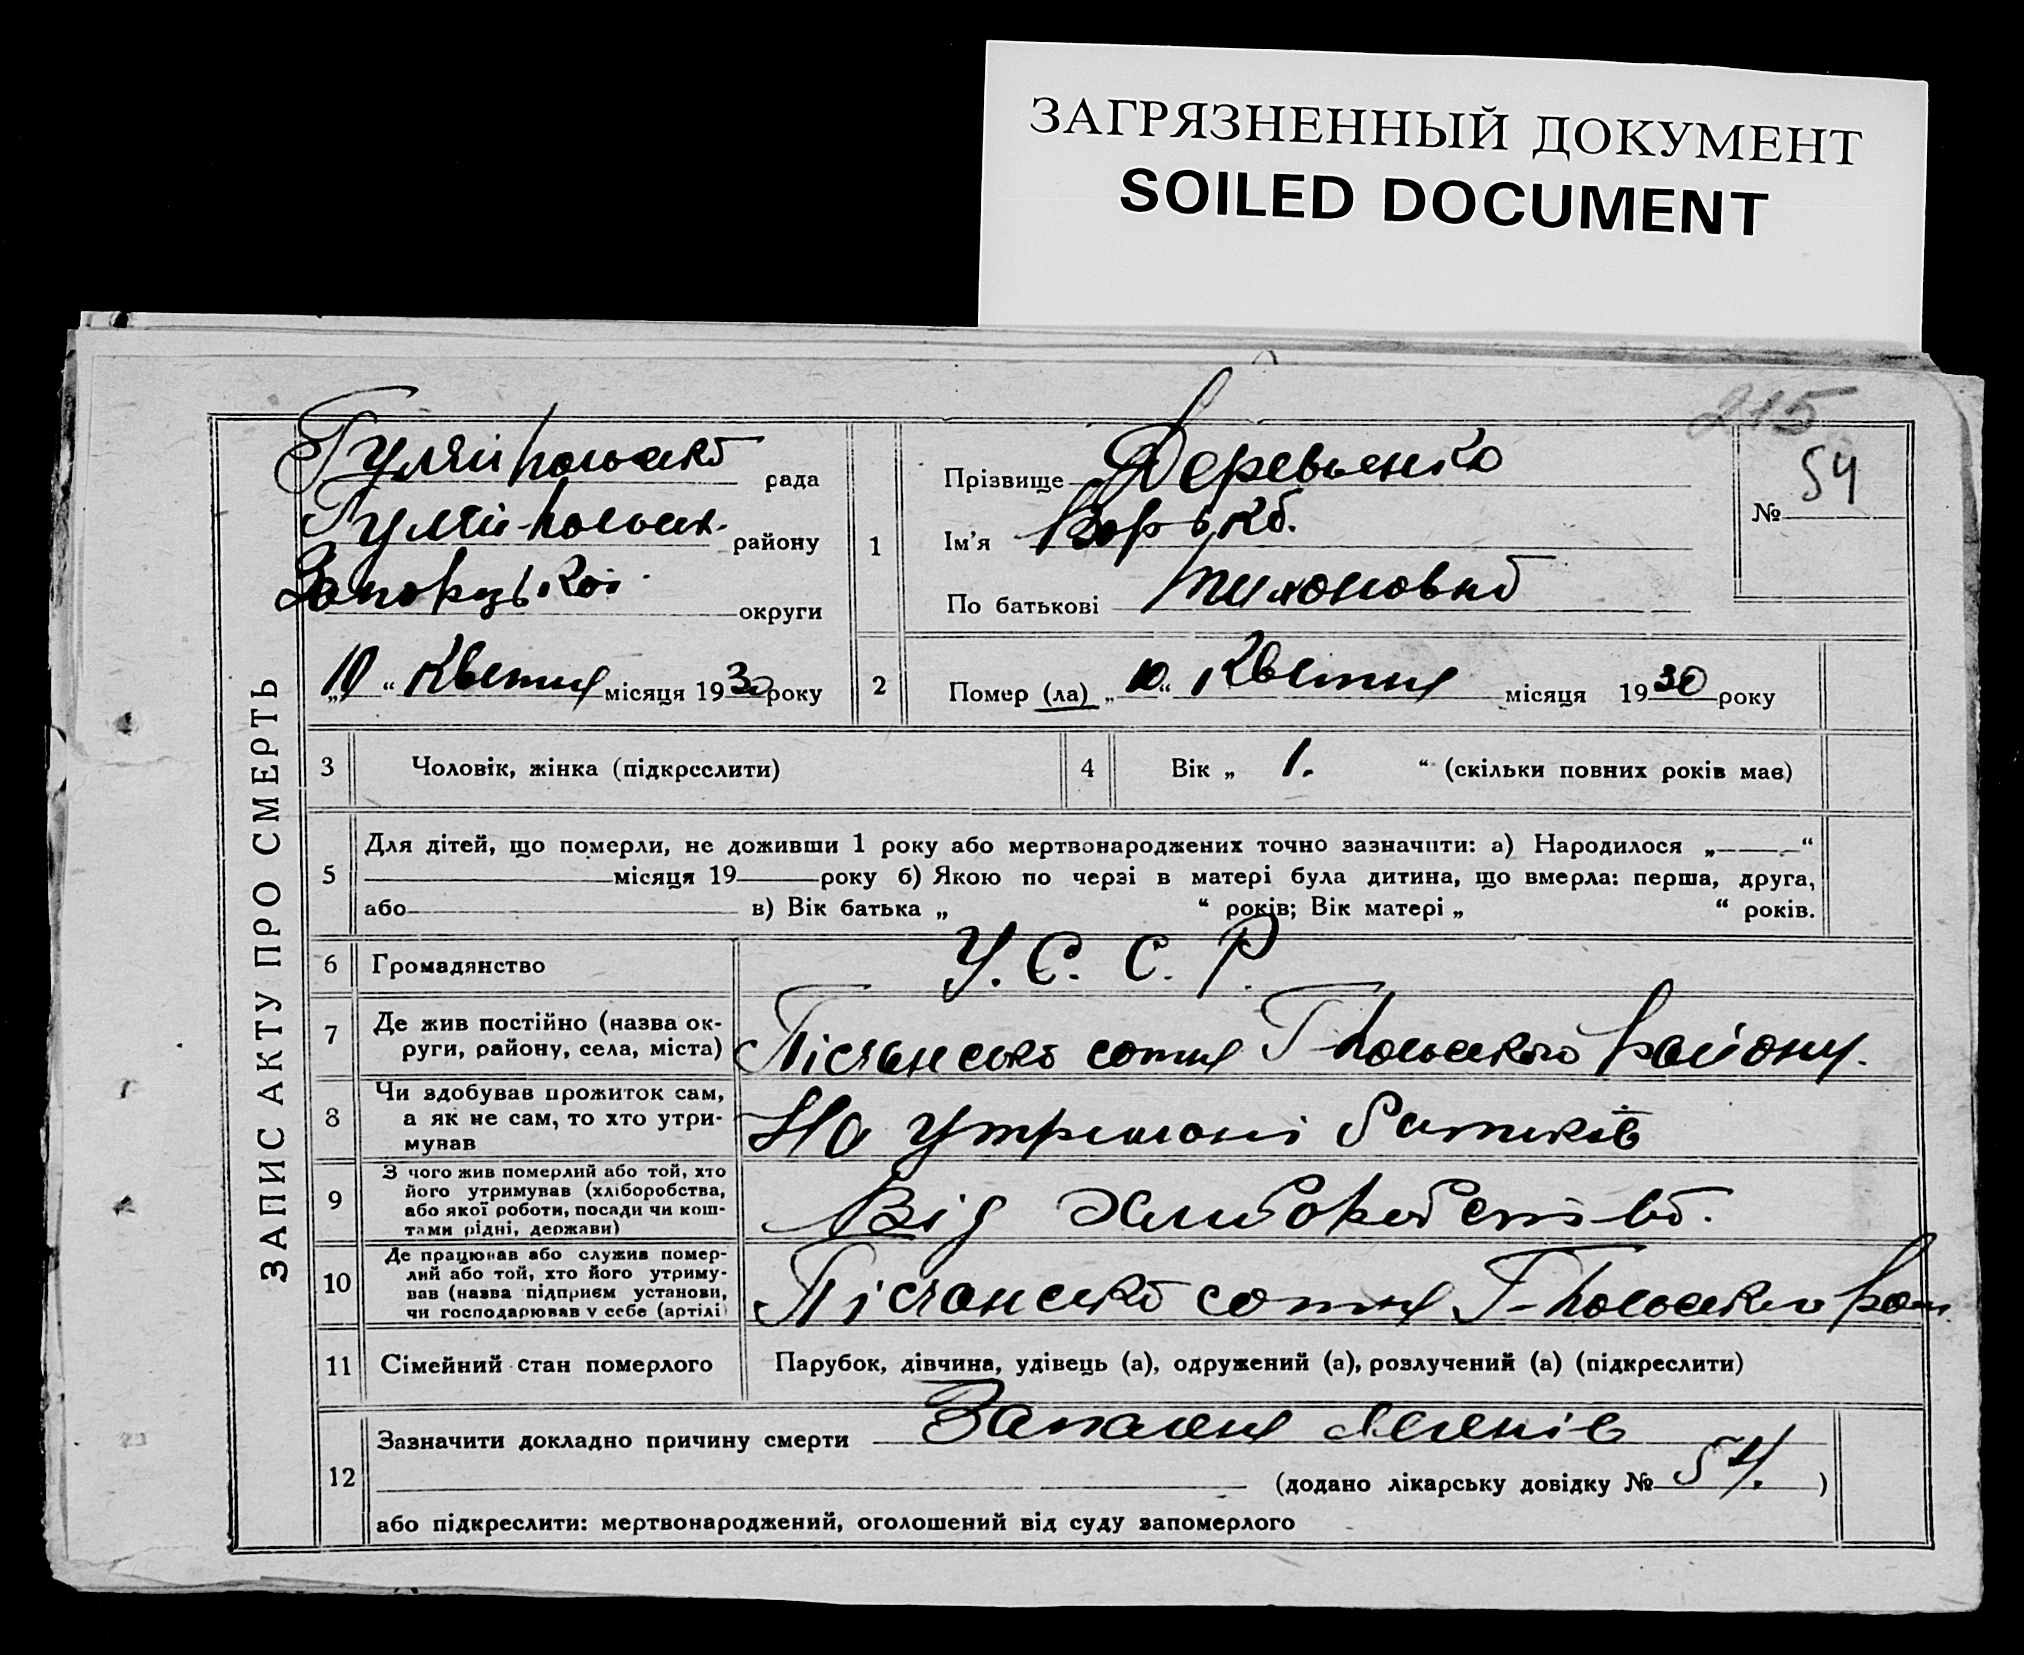 ЗАГРЯЗНЕННЫЙ ДОКУМЕНТ
SOILED DOCUMENT
215
ЗАПИС АКТУ ПРО СМЕРТЬ
Гуляйпольська рада
Гуляй-польск. району
округи
„10“ Квітня місяця 1930 року
1
Прізвище Деревьенко
Ім'я
По батькові Тихоновна
№ 54
2
Помер (ла) „10“ Квітня місяця 1930 року
3 Чоловік, жінка (підкреслити)
4 Вік „ 1. “ (скільки повних років мав)
5 Для дітей, що померли, не доживши 1 року або мертвонароджених точно зазначити: а) Народилося „ “
місяця 19 року б) Якою по черзі в матері була дитина, що вмерла: перша, друга,
або в) Вік батька „ “ років; Вік матері „ “ років.
6 Громадянство У. С. С. Р.
7 Де жив постійно (назва ок-
руги, району, села, міста) Пісчанська сотня Г-польского району.
8 Чи здобував прожиток сам,
а як не сам, то хто утри-
мував На утримані батьків
9 З чого жив померлий або той, хто
його утримував (хліборобства,
або якої роботи, посади чи кош-
тами рідні, держави) Від хлиборобства.
10 Де працював або служив помер-
лий або той, хто його утриму-
вав (назва підприєм установи,
чи господарював у себе (артілі) Пісчанська сотня Г-польского рай.
11 Сімейний стан померлого Парубок, дівчина, удівець (а), одружений (а), розлучений (а) (підкреслити)
12 Зазначити докладно причину смерти Запаленя легенів
(додано лікарську довідку № 54. )
або підкреслити: мертвонароджений, оголошений від суду запомерлого